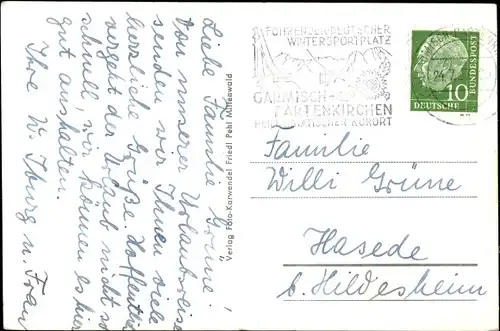 Liebe Familie Grüne!
Von unserer Urlaubsreise
senden wir Ihnen viele
herzliche Grüße. Hoffentlich
vergeht der Urlaub nicht so
schnell, wir können es hier
gut aushalten.
Ihre W. Iburg u. Frau
Verlag Foto-Karwendel Friedl Pehl Mittenwald
FÜHRENDER DEUTSCHER
WINTERSPORTPLATZ
GARMISCH-
PARTENKIRCHEN
HEILKLIMATISCHER KURORT
DEUTSCHE
BUNDESPOST
10
Familie
Willi Grüne
Hasede
b. Hildesheim